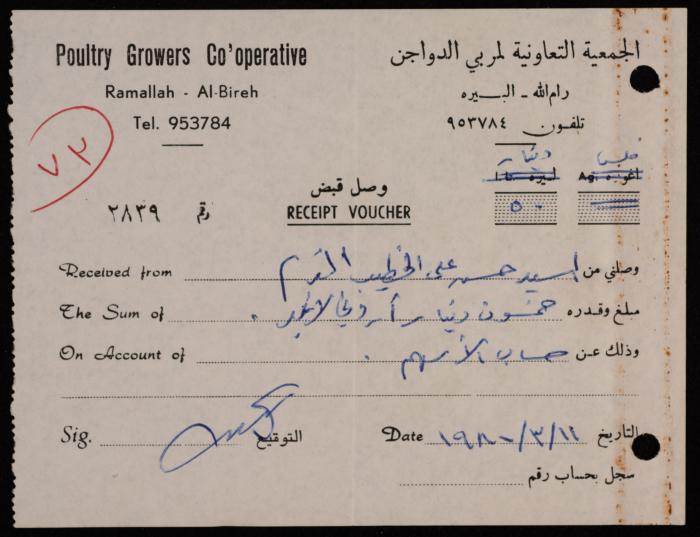 Poultry Growers Co'operative
الجمعية التعاونية لمربي الدواجن
Ramallah - Al-Bireh
رام الله - البيره
Tel. 953784
تلفون ٩٥٣٧٨٤
٧٣
فلس دينار
اغوره .Ag ليره I.L
وصل قبض
RECEIPT VOUCHER
٥٠
رقم ٢٨٣٩
Received from السيد حسن علي الخطيب المحترم وصلني من
The Sum of خمسون دينار أردني لاغير . مبلغ وقدره
On Account of حساب الأسهم . وذلك عن
Sig. التوقيع
Date ١٩٨٠/٣/١١ التاريخ
سجل بحساب رقم